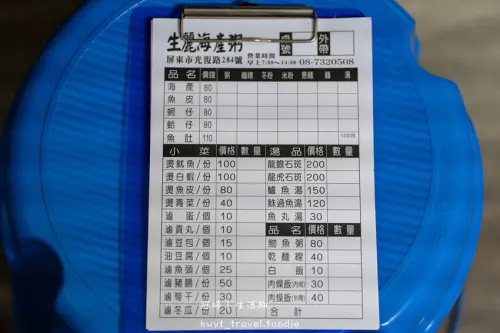 生麗海產粥
桌號
外帶
屏東市光復路284號
營業時間
早上7:00~14:00 08-7320508
品名 價錢 粥 麵 冬粉 米粉 麵 湯
海產 80
魚皮 80
蚵仔 80
蛤仔 80
魚肚 110
小菜 價格 數量 湯品 價格 數量
燙魷魚/份 100 龍膽石斑 200
燙白蝦/份 100 龍虎石斑 200
燙魚皮/份 80 鱸魚湯 150
燙青菜/份 40 魚湯 120
滷蛋/個 10 魚丸湯 30
滷貢丸/個 10 品名 價格 數量
滷豆包/個 15 魚粥 80
油豆腐/個 10 乾麵線 40
滷魚頭/個 25 白飯 10
滷豬腸/份 50 肉燥飯(內用) 30
滷筍干/份 30 肉燥飯(外帶) 40
滷冬瓜/份 20
kwyt_travel.foodie